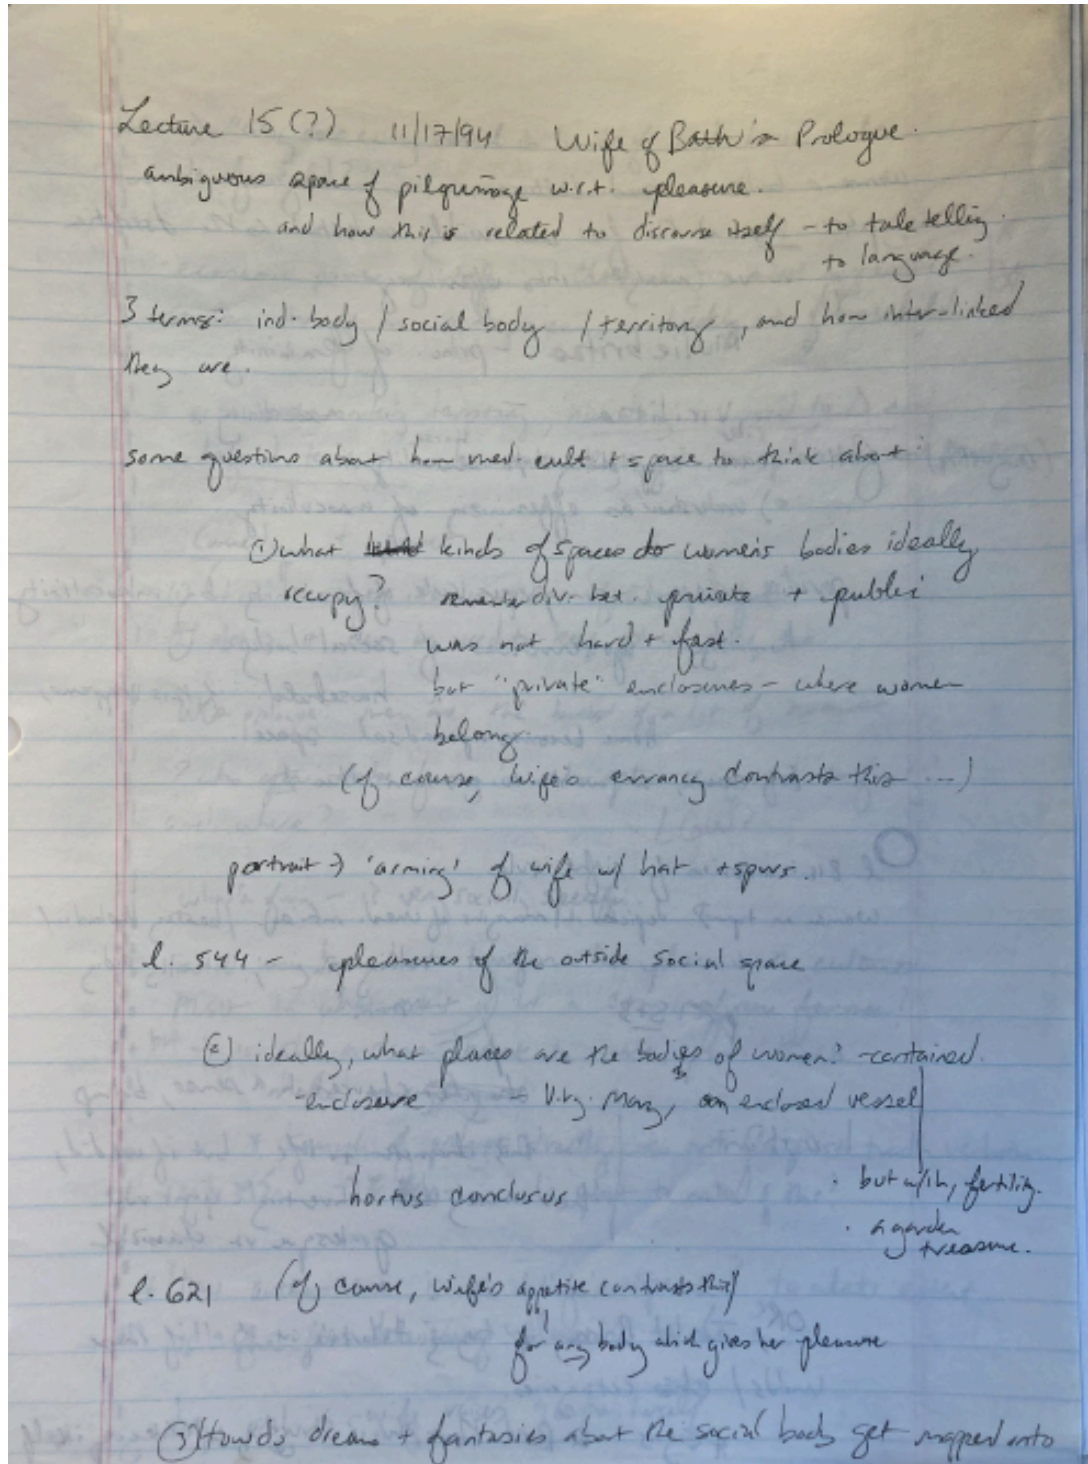 Lecture 15 (?) 11/17/94 Wife of Bath's Prologue.
ambiguous space of pilgrimage w.r.t. pleasure.
and how this is related to discourse itself - to tale telling.
to language.
3 terms: ind. body / social body / territory, and how inter-linked
they are.
some questions about how med. cult + space to think about:
① what kinds of spaces do women's bodies ideally
occupy? remember div. bet. private + public
was not hard + fast.
but "private" enclosures - where women
belong.
(of course, Wife's errancy contrasts this ...)
portrait → 'arming' of wife w/ hat + spurs.
l. 544 - pleasures of the outside social space
② ideally, what places are the bodies of women? - contained.
-enclosure - Virg. Mary, an enclosed vessel
hortus conclusus
· but w/in, fertility.
· a garden
treasure.
l. 621 (of course, Wife's appetite contrasts this)
for any body which gives her pleasure
③ How do dreams + fantasies about the social body get mapped onto